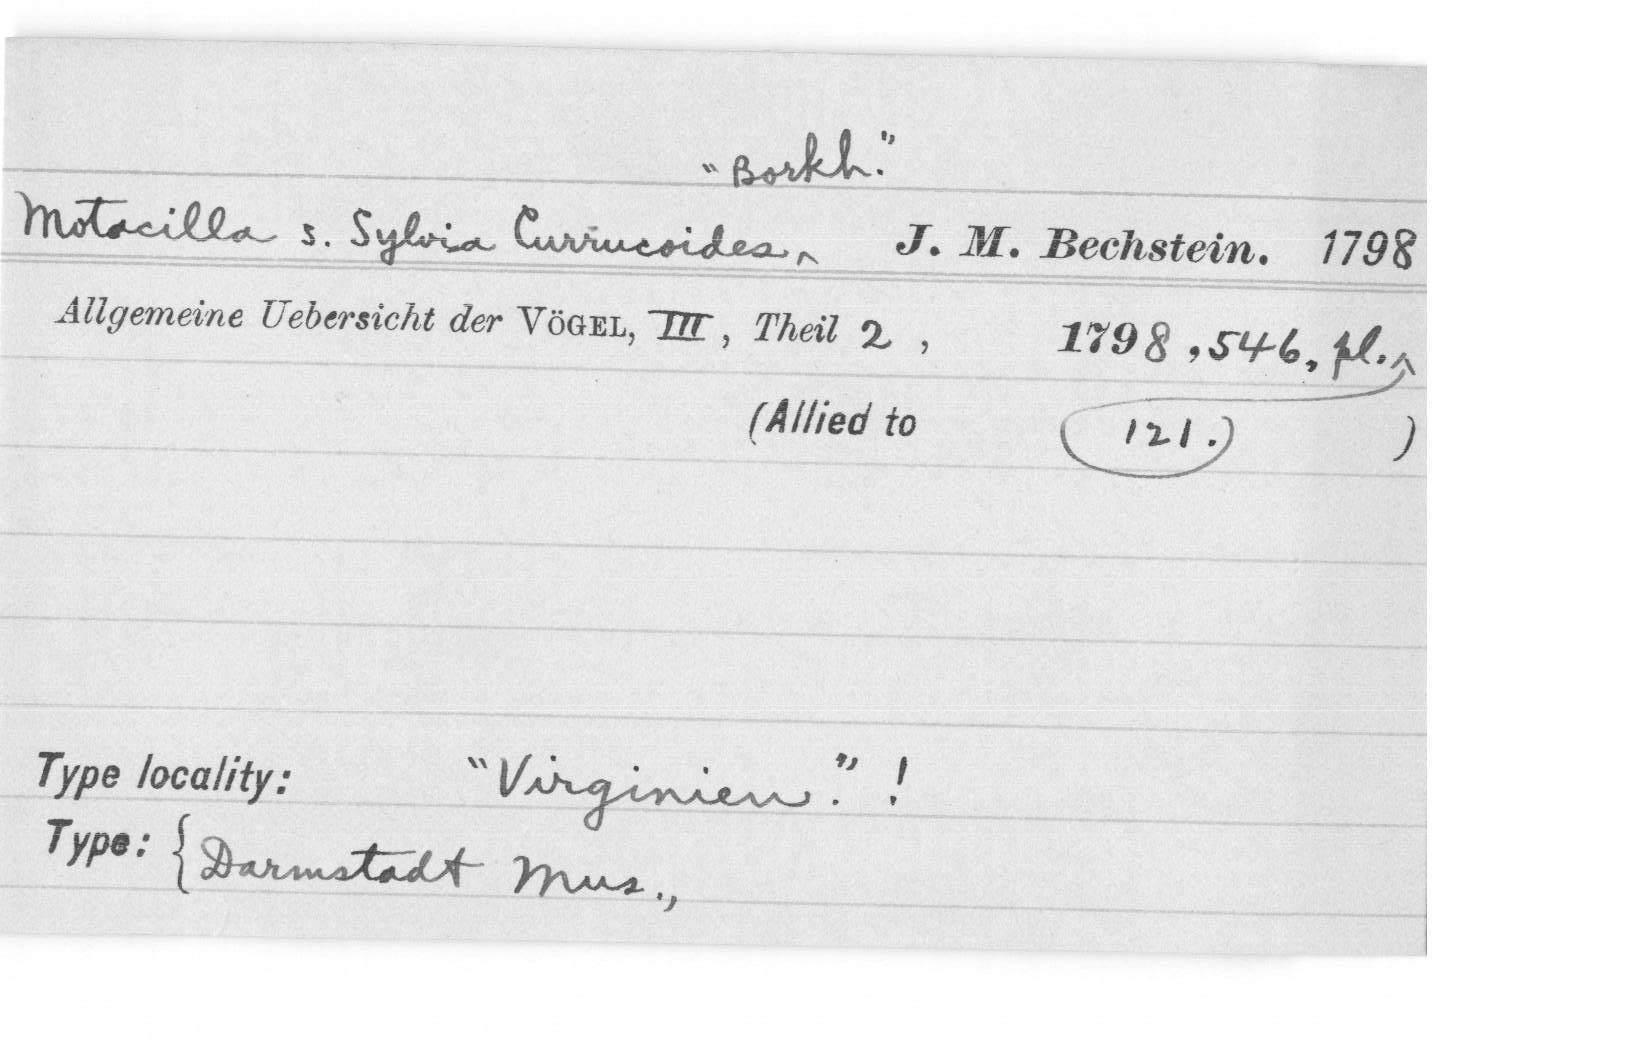 "Borkh."
Motacilla s. Sylvia Currucoides ‸ J. M. Bechstein. 1798
Allgemeine Uebersicht der VÖGEL, III, Theil 2, 1798, 546, pl. ‸
(Allied to 121.) )
Type locality: "Virginien." !
Type: { Darmstadt Mus.,